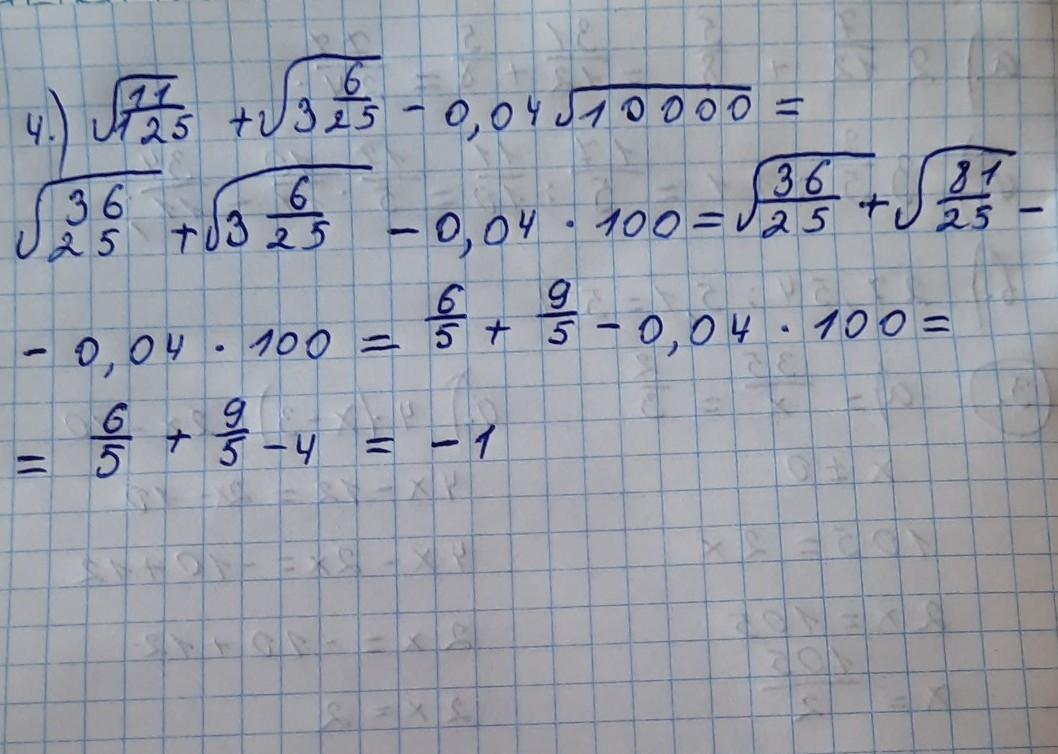 4.) √11/125 + √3 6/25 - 0,04√10000 =
√36/25 + √3 6/25 - 0,04 · 100 = √36/25 + √81/25 -
- 0,04 · 100 = 6/5 + 9/5 - 0,04 · 100 =
= 6/5 + 9/5 - 4 = -1